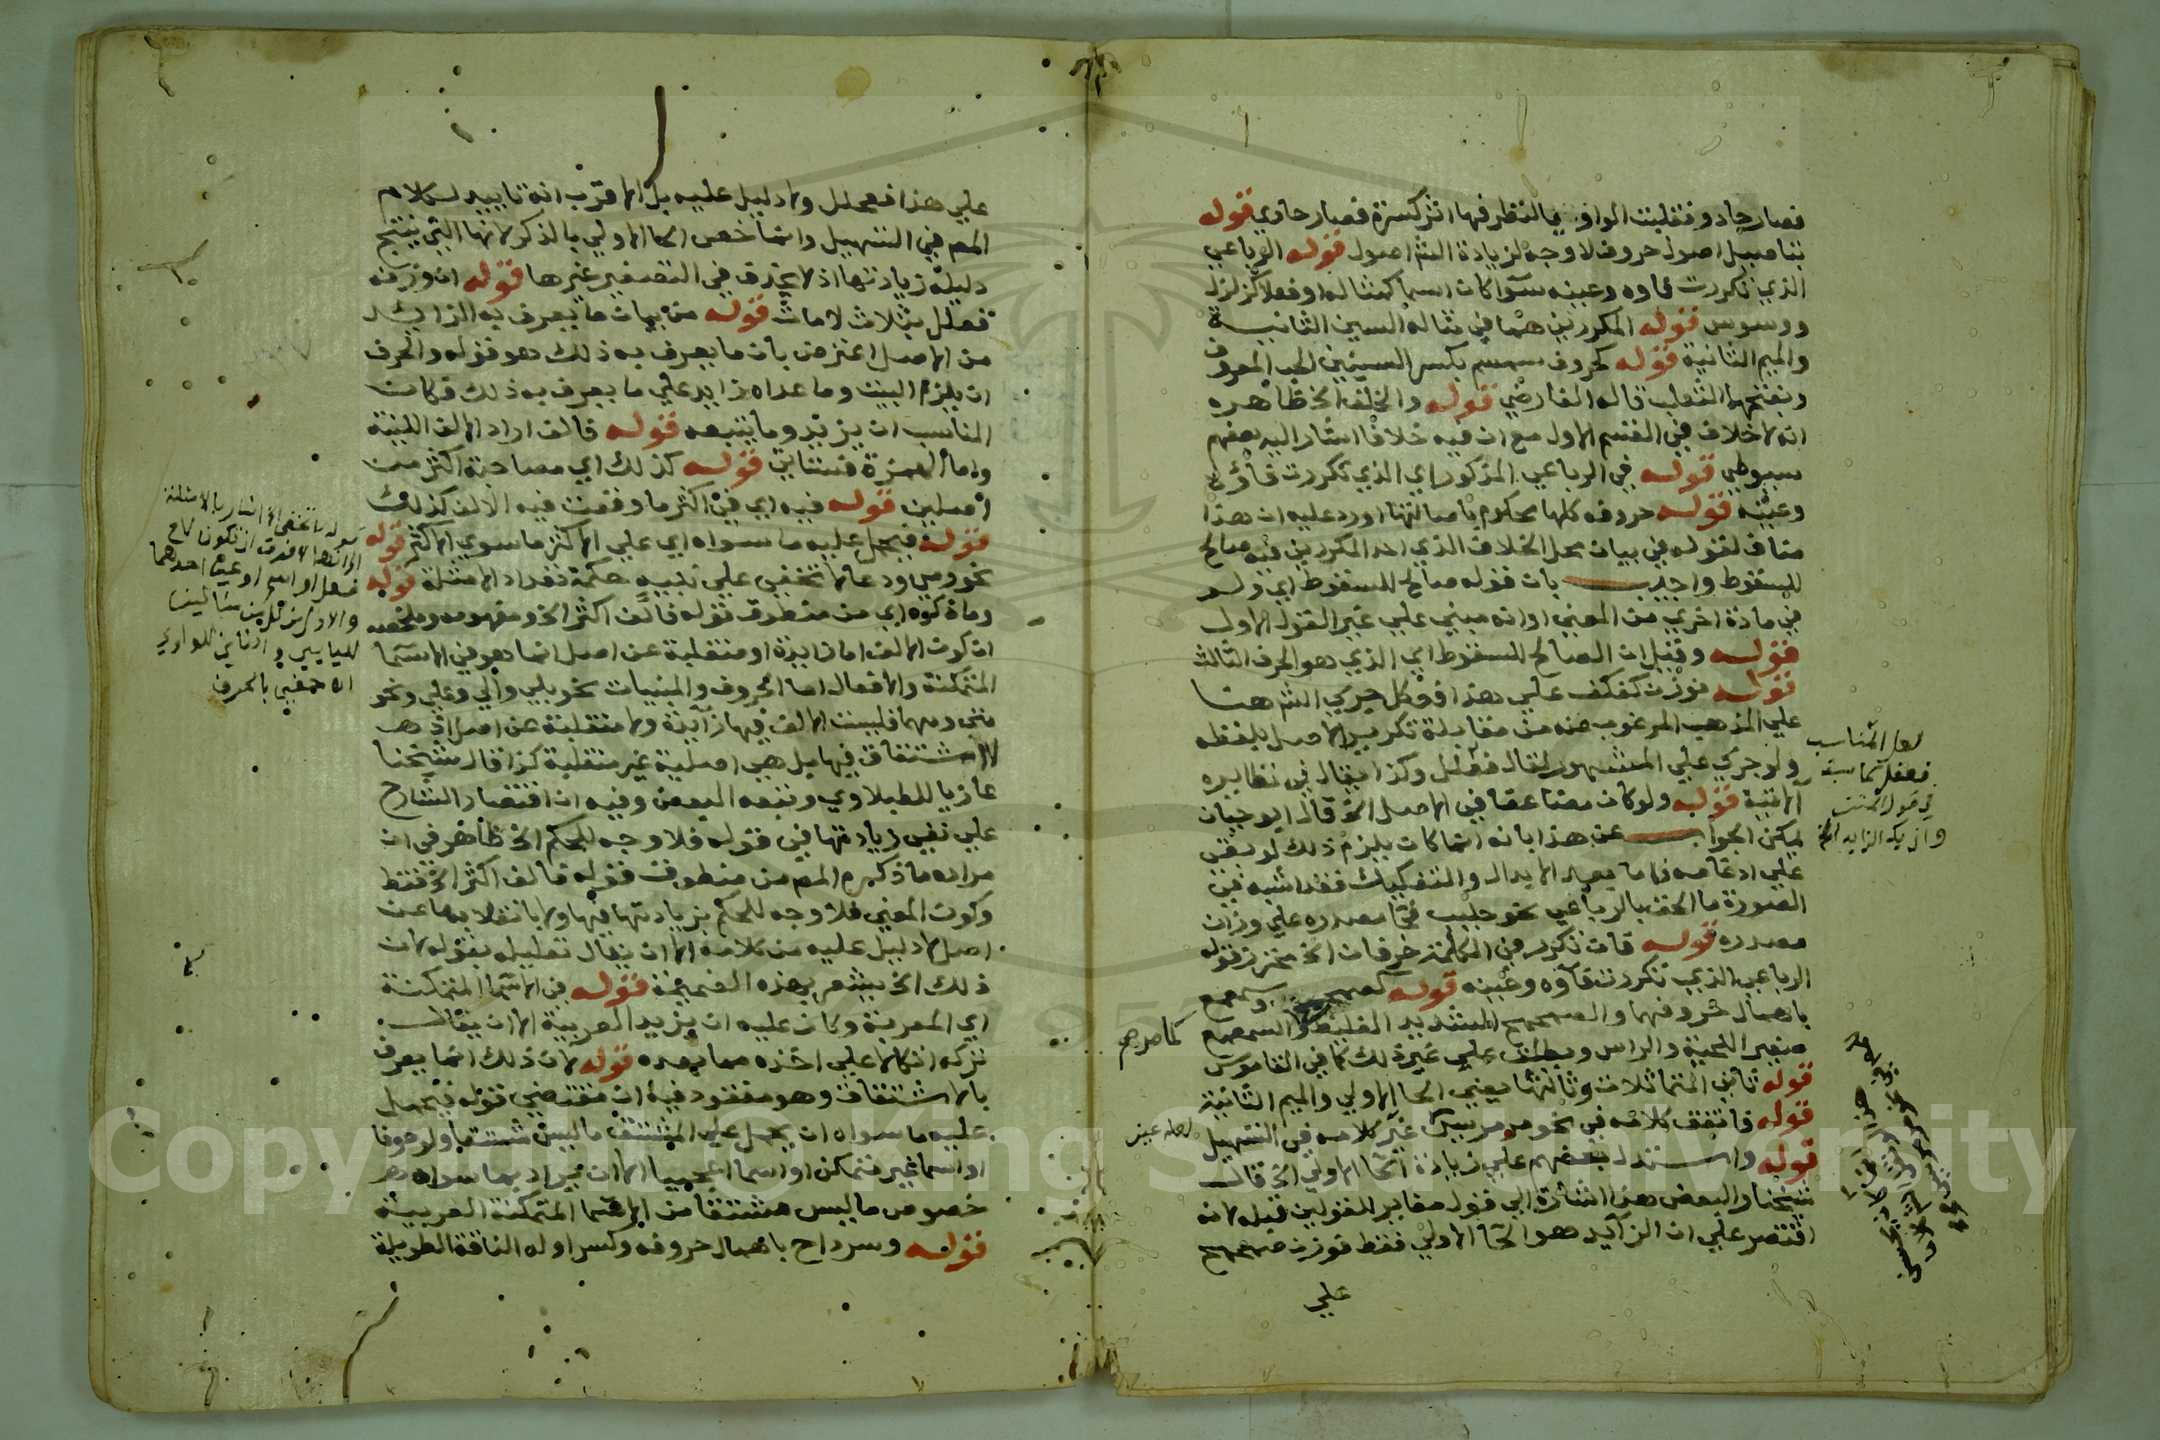 فصار حادو فقلبت الواو يا لتطرفها اثر كسرة فصار حادي قوله
بتاصيل اصول حروف لا وجه لزيادة الثم اصول قوله الرباعي
الذي تكررت فاوه وعينه سوا كان اسما كمثاله او فعلا كزلزل
ووسوس قوله المكررين هما في مثاله السين الثانية
والميم الثانية قوله كحروف سمسم بكسر السينين الحب المعروف
وبفتحهما الثعلب قاله الفارضي قوله والخلف الخ ظاهره
انه لا خلاف في القسم الاول مع ان فيه خلافا اشار اليه بعضهم
سيوطي قوله في الرباعي المذكور اي الذي تكررت فاوه
وعينه قوله حروفه كلها محكوم باصالتها اورد عليه ان هذا
مناف لقوله في بيان محل الخلاف الذي احد المكررين فيه صالح
للسقوط واجيب بان قوله صالح للسقوط اي ولو
في مادة اخري من المعني او انه مبني علي غير القول الاول
قوله وقيل ان الصالح للسقوط اي الذي هو الحرف الثالث
قوله فوزن كفكف علي هذا فعكل جري الشم هنا
علي المذهب المرغوب عنه من مقابلة تكرير الاصل بلفظه
ولو جري علي المشهور لقال فعلل وكذا يقال في نظايره
الاتية قوله ولو كان مضاعفا في الاصل الخ قال ابو حيان
يمكن الجواب عن هذا بانه انما كان يلزم ذلك لو بقي
علي ادغامه فاما بعد الابدال والتفكيك فقد اشبه في
الصورة ما الحق بالرباعي نحو جلبب فجا مصدره علي وزان
مصدره قوله فان تكرر في الكلمة حرفان الخ محترز قوله
الرباعي الذي تكررت فاوه وعينه قوله كصمحمح وسمعمع
باهمال حروفهما والصمحمح الشديد الغليظ والسمعمع
صغير اللحية والراس ويطلق علي غير ذلك كما في القاموس
قوله ثاني المتماثلات وثالثها يعني الحا الاولي والميم الثانية
قوله فاتفق كلامه في نحو مرمريس غير كلامه في التسهيل
قوله واستدل بعضهم علي زيادة الحا الاولي الخ قال
شيخنا والبعض هذا اشارة الي قول مغاير للقولين قبله لانه
اقتصر علي ان الزايد هو الحا الاولي فقط فوزن صمحمح
علي
لعل المناسب
فعفل كما سبق
في قول المتن
وان يك الزايد الخ
كما صرحهم
لعله عين
علي هذا فعحلل ولا دليل عليه بل الاقرب انه تاييد لكلام
المص في التسهيل وانما خص الحا الاولي بالذكر لانها التي ينتج
دليله زيادتها اذ لا يحذف في التصغير غيرها قوله ان وزنه
فعلل بثلاث لامات قوله من بيان ما يعرف به الزايد
من الاصل اعترض بان ما يعرف به ذلك هو قوله والحرف
ان يلزم البيت وما عداه زايد علي ما يعرف به ذلك فكان
المناسب ان يزيد وما يتبعه قوله فالف اراد الالف اللينة
واما الهمزة فستاتي قوله كذلك اي مصاحبة اكثر من
اصلين قوله فيه اي في اكثر ما وقعت فيه الالف كذلك
قوله فيحمل عليه ما سواه اي علي الاكثر ما سوي الاكثر قوله
نحو رمي ودعا لا تخفي علي نبيه حكمة تعداد الامثلة قوله
وما ذكره اي من منطوق قوله فالف اكثر الخ ومفهومه وملخصه
ان كون الالف اما زايدة او منقلبة عن اصل انما هو في الاسما
المتمكنة والافعال اما الحروف والمبنيات نحو بلي والي وعلي ونحو
متي ومهما فليست الالف فيها زايدة ولا منقلبة عن اصل اذ هـ
لا اشتقاق فيها بل هي اصلية غير منقلبة كذا قال شيخنا
عازيا للطبلاوي وتبعه البعض وفيه ان اقتصار الشارح
علي نفي زيادتها في قوله فلا وجه للحكم الخ ظاهر في ان
مراده ما ذكره المص من منطوق قوله فالف اكثر الخ فقط
وكون المعني فلا وجه للحكم بزيادتها فيها ولا بانقلابها عن
اصل لا دليل عليه من كلامه الا ان يقال تعليله بقوله لان
ذلك الخ يشعر بهذه الضميمة قوله في الاسما المتمكنة
اي المعربة وكان عليه ان يزيد العربية الا ان يقال
تركه اتكالا علي اخذه مما بعده قوله لان ذلك انما يعرف
بالاشتقاق وهو مفقود فيه ان مقتضي قوله فيحمل
عليه ما سواه ان يحمل علي المشتق ما ليس مشتقا ولو حرفا
او اسما غير متمكن او اسما اعجميا الا ان يراد بما سواه هـ
خصوص ما ليس مشتقا من الاسما المتمكنة العربية
قوله وسرداح باهمال حروفه وكسر اوله الناقة الطويلة